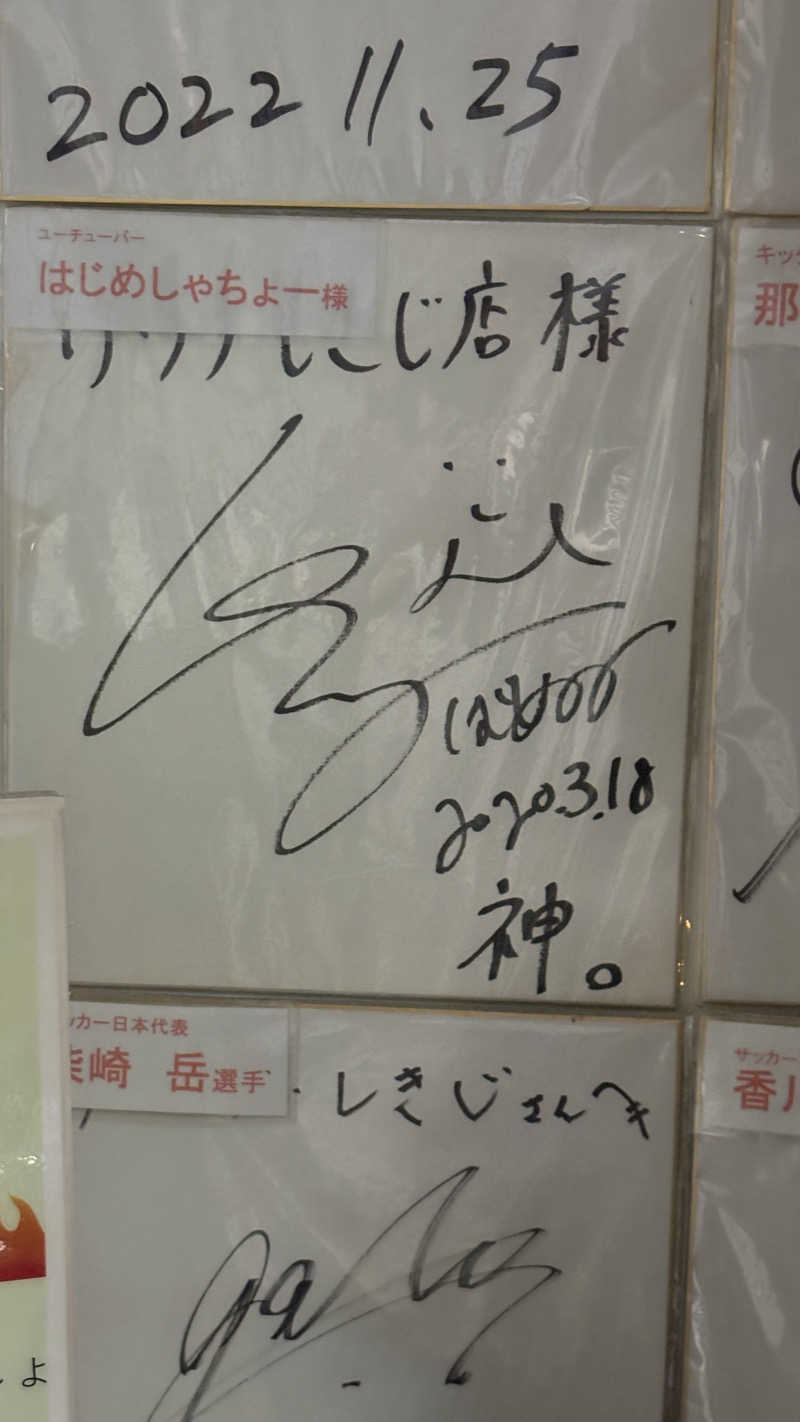 2022 11.25
ユーチューバー
はじめしゃちょー様
サウナしきじ店様
はじめ
2020.3.18
神。
ッカー日本代表
柴崎 岳選手
しきじさんへ
キッ
那
サッカー
香川
しよ